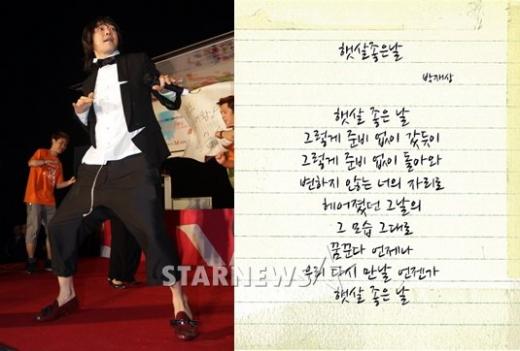 햇살 좋은 날
박재상
햇살 좋은 날
그렇게 준비 없이 갔듯이
그렇게 준비 없이 돌아와
변하지 않는 너의 자리로
헤어졌던 그날의
그 모습 그대로
꿈꾼다 언제나
우리 다시 만날 언젠가
햇살 좋은 날
STARNEWS